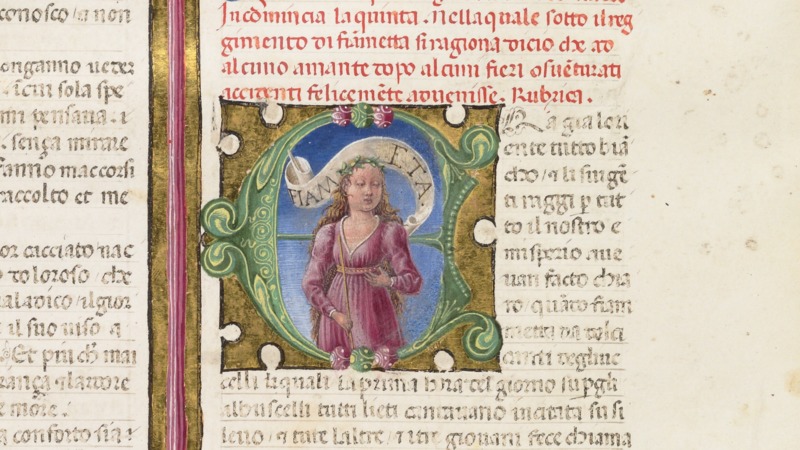 conosco / a non
onganno veder
sola spe
mi pensava . i
. senza mirare
fanno maccorsi
raccolto et me
or cacciato nac
o doloroso / che
aladico / ilgior
t il suo viso a
Et piu ch mai
ranza / larore
e more .
a conforto sia i
Incomincia la quinta . Nella quale sotto il reg
gimento di fiãmetta si ragiona dicio che ad
alcuno amante dopo alcuni fieri o suẽturati
accidenti felicemẽte advenisse . Rubrica .
FIAM ETA
Ra gia lori
ente tutto biã
cho / & li surgẽ
ti raggi p tut
to il nostro e
misperio ave
van facto chia
ro / quãdo fiam
metta da dolci
canti deghuc
celli la quali la prima hora del giorno su p gli
albuscelli tutti lieti cantavano incitata su si
levo / & tute laltre / & i tre giovani fece chiama